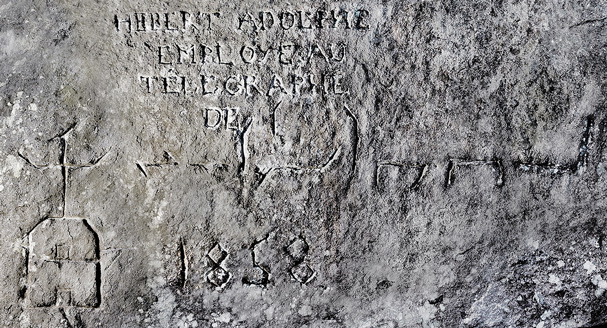 HUBERT ADOLPHE
EMPLOYE AU
TELEGRAPHE
DE
1858